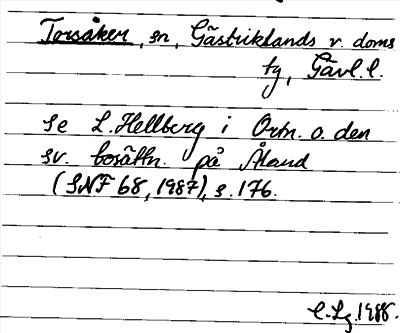 Torsåker, sn, Gästriklands v. doms
tg, Gävl. l.
se L. Hellberg i Ortn. o. den
sv. bosättn. på Åland
(SNF 68, 1987), s. 176.
C. Lg. 1988.